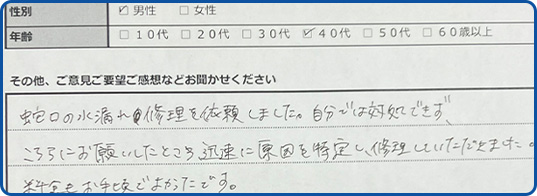 性別 ☑ 男性 □ 女性
年齢 □ 10代 □ 20代 □ 30代 ☑ 40代 □ 50代 □ 60歳以上
その他、ご意見ご要望ご感想などお聞かせください
蛇口の水漏れ修理を依頼しました。自分では対処できず、
こちらにお願いしたところ迅速に原因を特定し、修理していただきました。
料金もお手頃でよかったです。